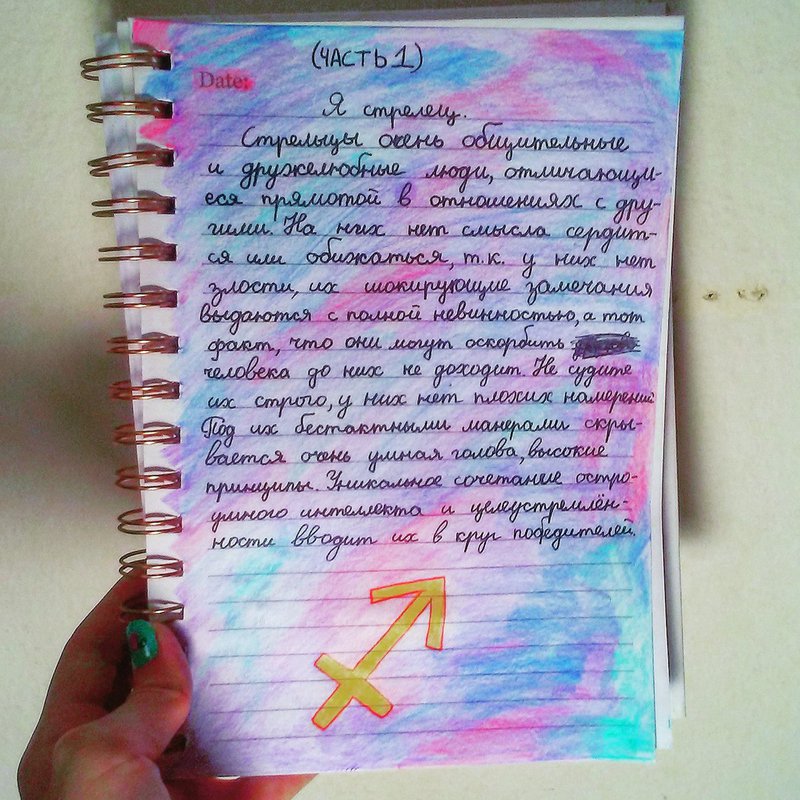 (ЧАСТЬ 1)
Date:
Я стрелец.
Стрельцы очень общительные
и дружелюбные люди, отличающи-
еся прямотой в отношениях с дру-
гими. На них нет смысла сердит-
ся или обижаться, т.к. у них нет
злости, их шокирующие замечания
выдаются с полной невинностью, а тот
факт, что они могут оскорбить
человека до них не доходит. Не судите
их строго, у них нет плохих намерений
Под их бестактными манерами скры-
вается очень умная голова, высокие
принципы. Уникальное сочетание остро-
умного интеллекта и целеустремлён-
ности вводит их в круг победителей.